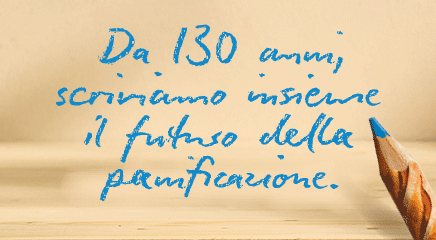 Da 130 anni,
scriviamo insieme
il futuro della
panificazione.